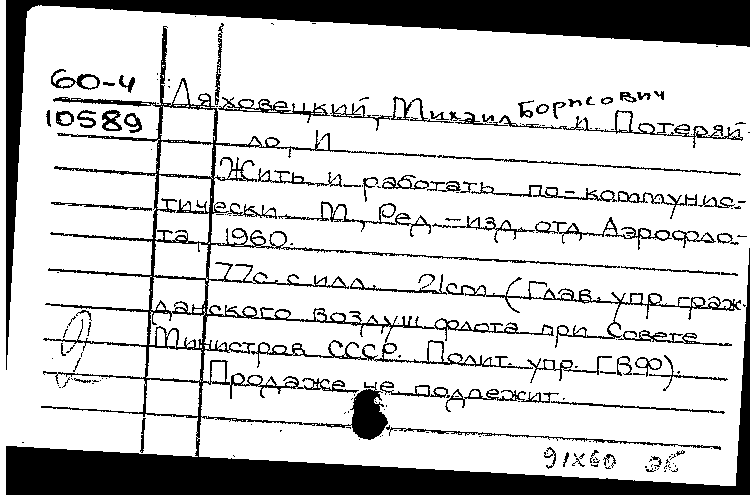 60-4
10589
Ляховецкий, Михаил Борисович и Потеряй-
ло, И
Жить и работать по-коммунис-
тически. М, Ред.-изд. отд Аэрофло-
та, 1960.
77с. с илл. 21cm. (Глав. упр граж-
данского воздуш флота при Совете
Министров СССР. Полит. упр. ГВФ).
Продаже не подлежит.
2
91X60 ЭБ